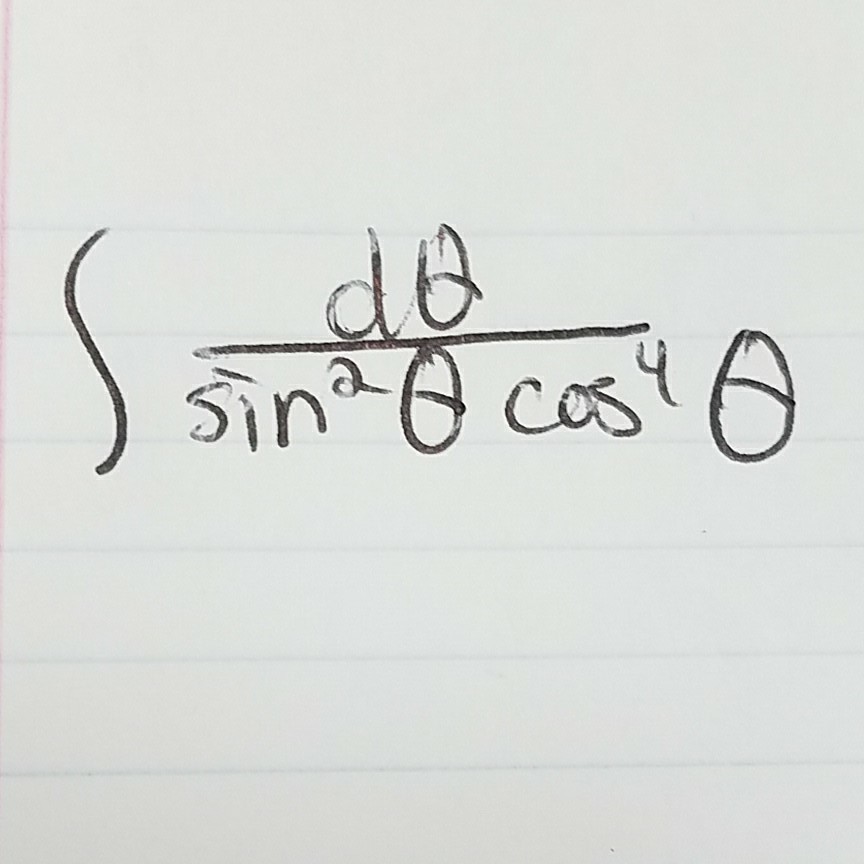 ∫ dθ / sin²θ cos⁴ θ